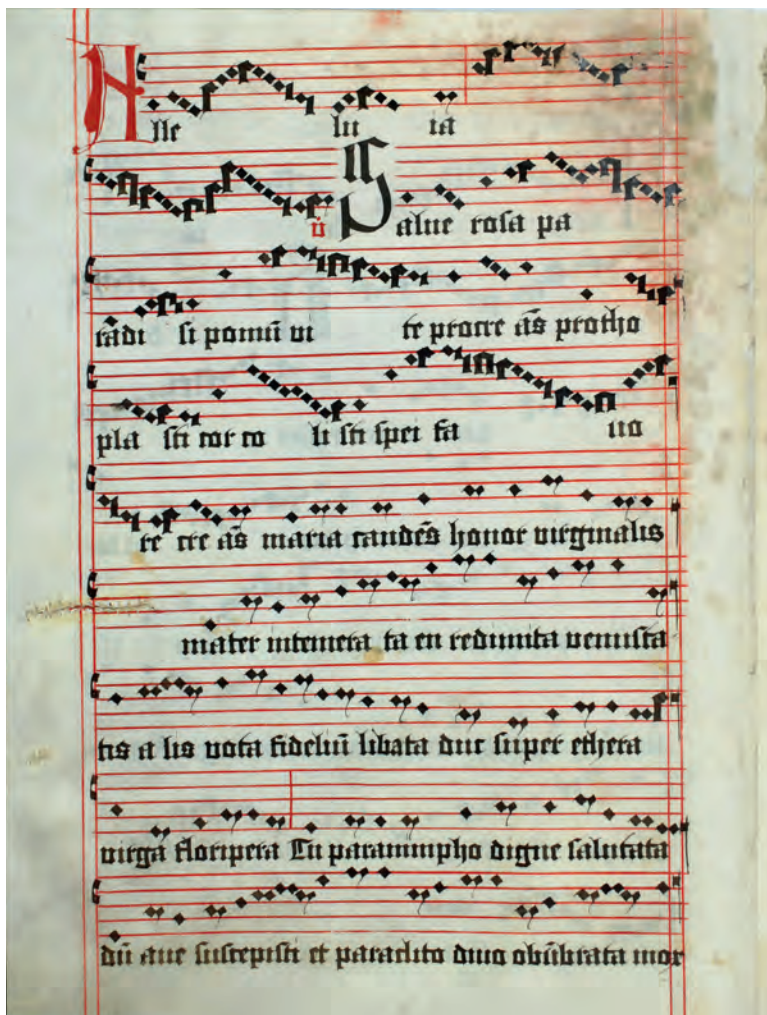 Alle lu ia
v̄ Salue rosa pa
radi si pomū vi te procre ās protho
pla sti cor co li sti spei fa uo
re cre ās maria candēs honor virginalis
mater intemera ta en redimita venusta
tis a lis vota fideliū libata duc super ethera
virga floripera Tu paranimpho digne salutata
dū aue suscepisti et paraclito diuo obūbrata mox